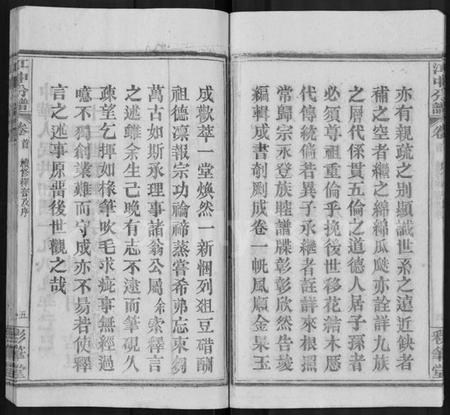 亦有親疏之別顯誠世系之遠近缺者
補之空者繼之綿綿瓜瓞亦詮詳九族
之層代係貫五倫之道德人居子孫者
必須尊祖重倫乎挽後世移花結木慝
代傳統倘若異子承繼者註詳來根照
常歸宗永登族睦譜牒彰彰欣然告竣
編輯成書剞劂成卷一帙風順金泉玉
成歡萃一堂煥然一新悃列俎豆醋酬
祖德凜報宗功禴禘蒸嘗希弗忘東芻
萬古如斯承理事諸翁公屬余索釋言
之述雖余生己晚有志不遠而筆硯久
疎望乞揮如椽筆吹毛求疵事無經過
噫不獨創業難而守成亦不易若使釋
言之述事原啚後世觀之哉
江中分譜
卷首
續修釋言及序
五
彩筆堂
江中分譜
卷
彩筆堂